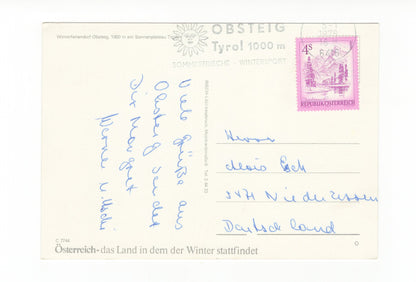 Winterferiendorf Obsteig, 1000 m ein Sonnenplateau
OBSTEIG
Tyrol 1000 m
SOMMERFRISCHE - WINTERSPORT
4 S
REPUBLIK ÖSTERREICH
Viele Grüße aus
Obsteig sendet
Dir Margret
Werner u.
Herrn
5471 Niederzissen
Deutschland
C 7746
Österreich-das Land in dem der Winter stattfindet